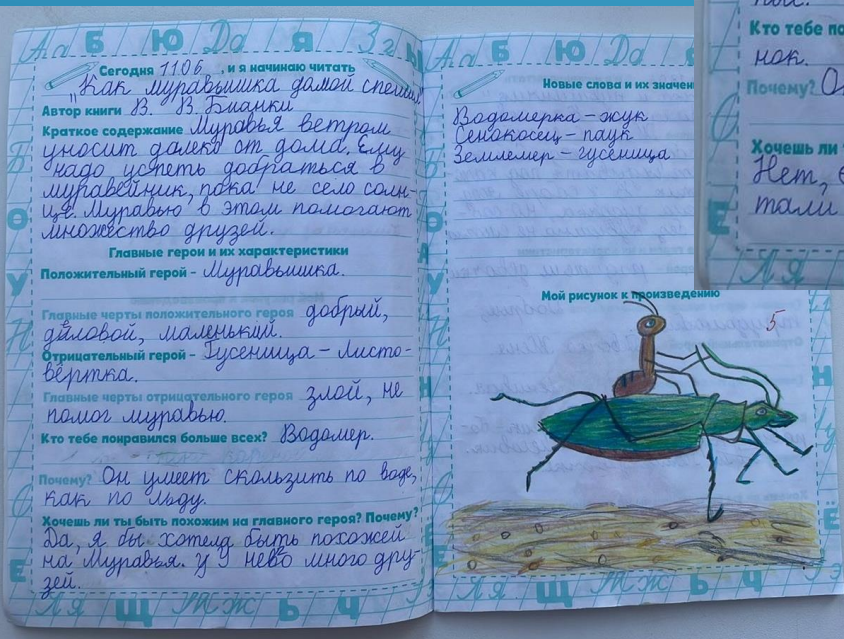 Аа Б Ю Да Я Зг Ы
Сегодня 11.06. , и я начинаю читать
"Как муравьишка домой спешил"
Автор книги В. В. Бианки
Краткое содержание Муравья ветром
уносит далеко от дома. Ему
надо успеть добраться в
муравейник, пока не село солн-
це. Муравью в этом помогают
множество друзей.
Главные герои и их характеристики
Положительный герой - Муравьишка.
Главные черты положительного героя добрый,
диловой, маленький.
Отрицательный герой - Гусеница - Листо-
вёртка.
Главные черты отрицательного героя злой, не
помог муравью.
Кто тебе понравился больше всех? Водомер.
Почему? Он умеет скользить по воде,
как по льду.
Хочешь ли ты быть похожим на главного героя? Почему?
Да, я бы хотела быть похожей
на Муравья. У него много дру-
зей.
Ля Щ Жж Ь Ч
Б Ю Да Я
Новые слова и их значен
Водомерка - жук
Сенокосец - паук
Землемер - гусеница
Мой рисунок к произведению
5
Ля Щ Жж Ь Ч
Кто тебе по
нок.
Почему?
Хочешь ли
Нет,
тали
Е
Ля